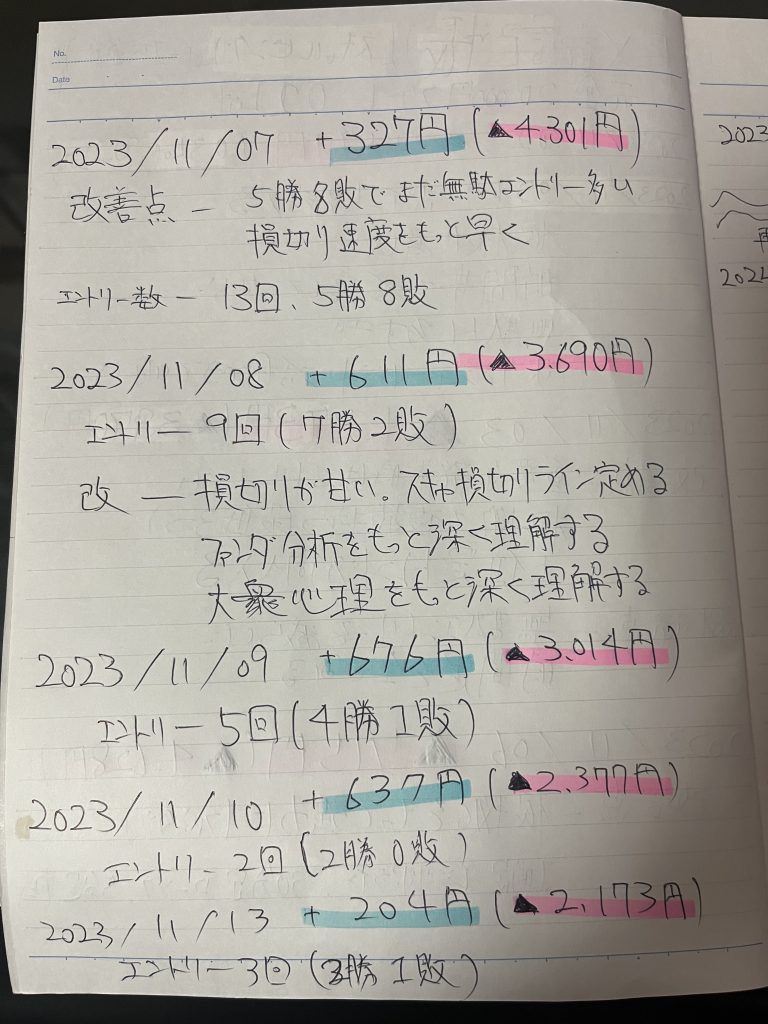 No.
Date
2023/11/07 +327円 (▲4.301円)
改善点 ー 5勝8敗でまだ無駄エントリー多い
損切り速度をもっと早く
エントリー数 ー 13回、5勝8敗
2023/11/08 +611円 (▲3.690円)
エントリー 9回 (7勝2敗)
改 ー 損切りが甘い。スキャ損切りライン定める
ファンダ分析をもっと深く理解する
大衆心理をもっと深く理解する
2023/11/09 +676円 (▲3.014円)
エントリー 5回 (4勝1敗)
2023/11/10 +637円 (▲2.377円)
エントリー 2回 (2勝0敗)
2023/11/13 +204円 (▲2.173円)
エントリー 3回 (2勝1敗)
2023